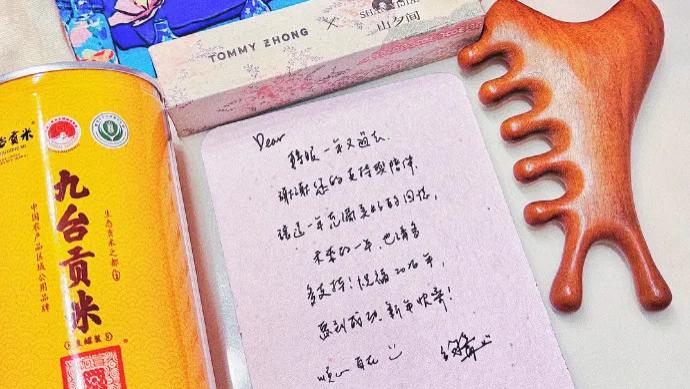 TOMMY ZHONG × SHAN
山夕间
贡米
九台贡米
中国农产品区域公用品牌
生态贡米之都
Dear
转眼一年又过去,
谢谢您的支持与陪伴,
让这一年充满美好的回忆,
未来的一年,也请多
多支持!祝福2026年,
马到成功,新年快乐!
顺心自在